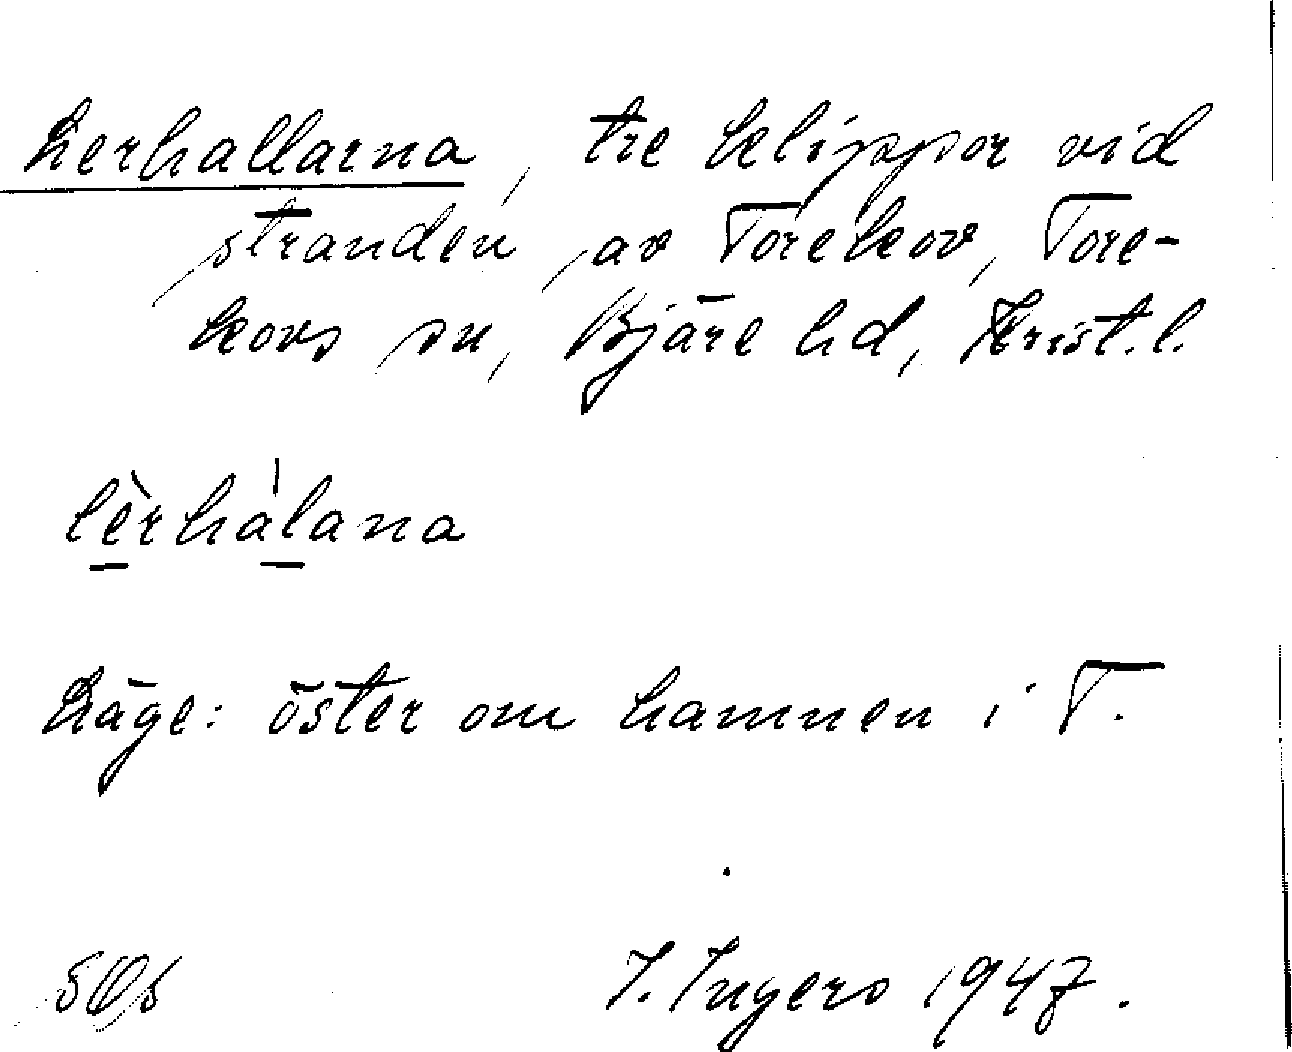 Lerhallarna, tre klippor vid
stranden av Torekov, Tore-
kovs sn, Bjäre hd, Krist.l.
lèrhàlana
Läge: öster om hamnen i T.
I. Ingers 1947.